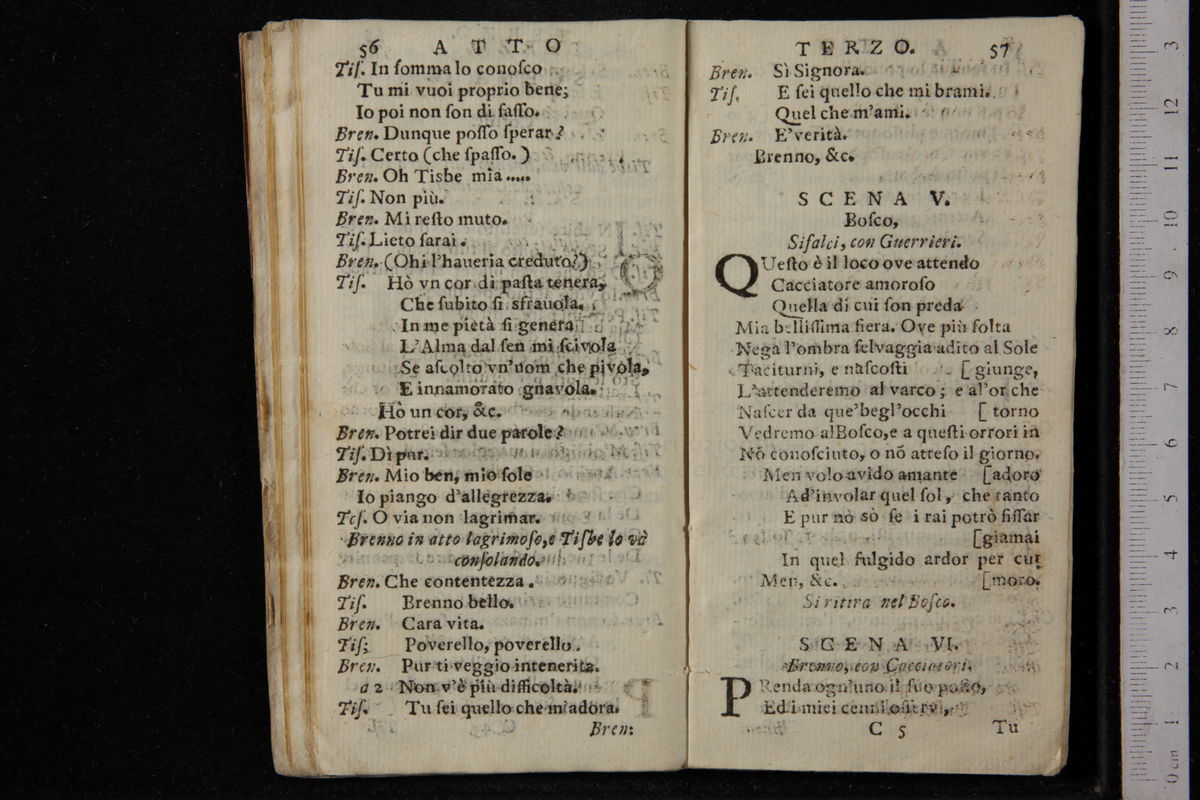 56 ATTO
Tiſ. In ſomma lo conoſco
Tu mi vuoi proprio bene;
Io poi non ſon di ſaſſo.
Bren. Dunque poſſo ſperar?
Tiſ. Certo (che ſpaſſo.)
Bren. Oh Tisbe mia.....
Tiſ. Non più.
Bren. Mi reſto muto.
Tiſ. Lieto ſarai.
Bren. (Ohi l'haueria creduto?)
Tiſ. Hò vn cor di paſta tenera,
Che ſubito ſi sfrauola.
In me pietà ſi genera
L'Alma dal ſen mi ſcivola
Se aſcolto vn'uom che pivola,
E innamorato gnavola.
Hò un cor, &c.
Bren. Potrei dir due parole?
Tiſ. Dì pur.
Bren. Mio ben, mio ſole
Io piango d'allegrezza.
Teſ. O via non lagrimar.
Brenno in atto lagrimoſo, e Tiſbe lo và
conſolando.
Bren. Che contentezza.
Tiſ. Brenno bello.
Bren. Cara vita.
Tiſ; Poverello, poverello.
Bren. Pur ti veggio intenerita.
a 2 Non v'è più difficoltà.
Tiſ. Tu ſei quello che m'adora.
Bren:
TERZO. 57
Bren. Sì Signora.
Tiſ. E ſei quello che mi brami.
Quel che m'ami.
Bren. E'verità.
Brenno, &c.
SCENA V.
Boſco,
Siſalci, con Guerrieri.
QUeſto è il loco ove attendo
Cacciatore amoroſo
Quella di cui ſon preda
Mia belliſſima fiera. Ove più folta
Nega l'ombra ſelvaggia adito al Sole
Taciturni, e naſcoſti [giunge,
L'attenderemo al varco; e al'or che
Naſcer da que'begl'occhi [torno
Vedremo alBoſco,e a queſti orrori in
Nõ conoſciuto, o nõ atteſo il giorno.
Men volo avido amante [adoro
Ad'involar quel ſol, che tanto
E pur nò sò ſe i rai potrò fiſſar
[giamai
In quel fulgido ardor per cui
Men, &c. [moro.
Si ritira nel Boſco.
SCENA VI.
Brenno, con Cacciatori.
PRenda ogn'uno il ſuo poſto,
Ed i miei cenni oſſervi,
C 5 Tu
3 12 11 10 9 8 7 6 5 4 3 2 1 0 cm